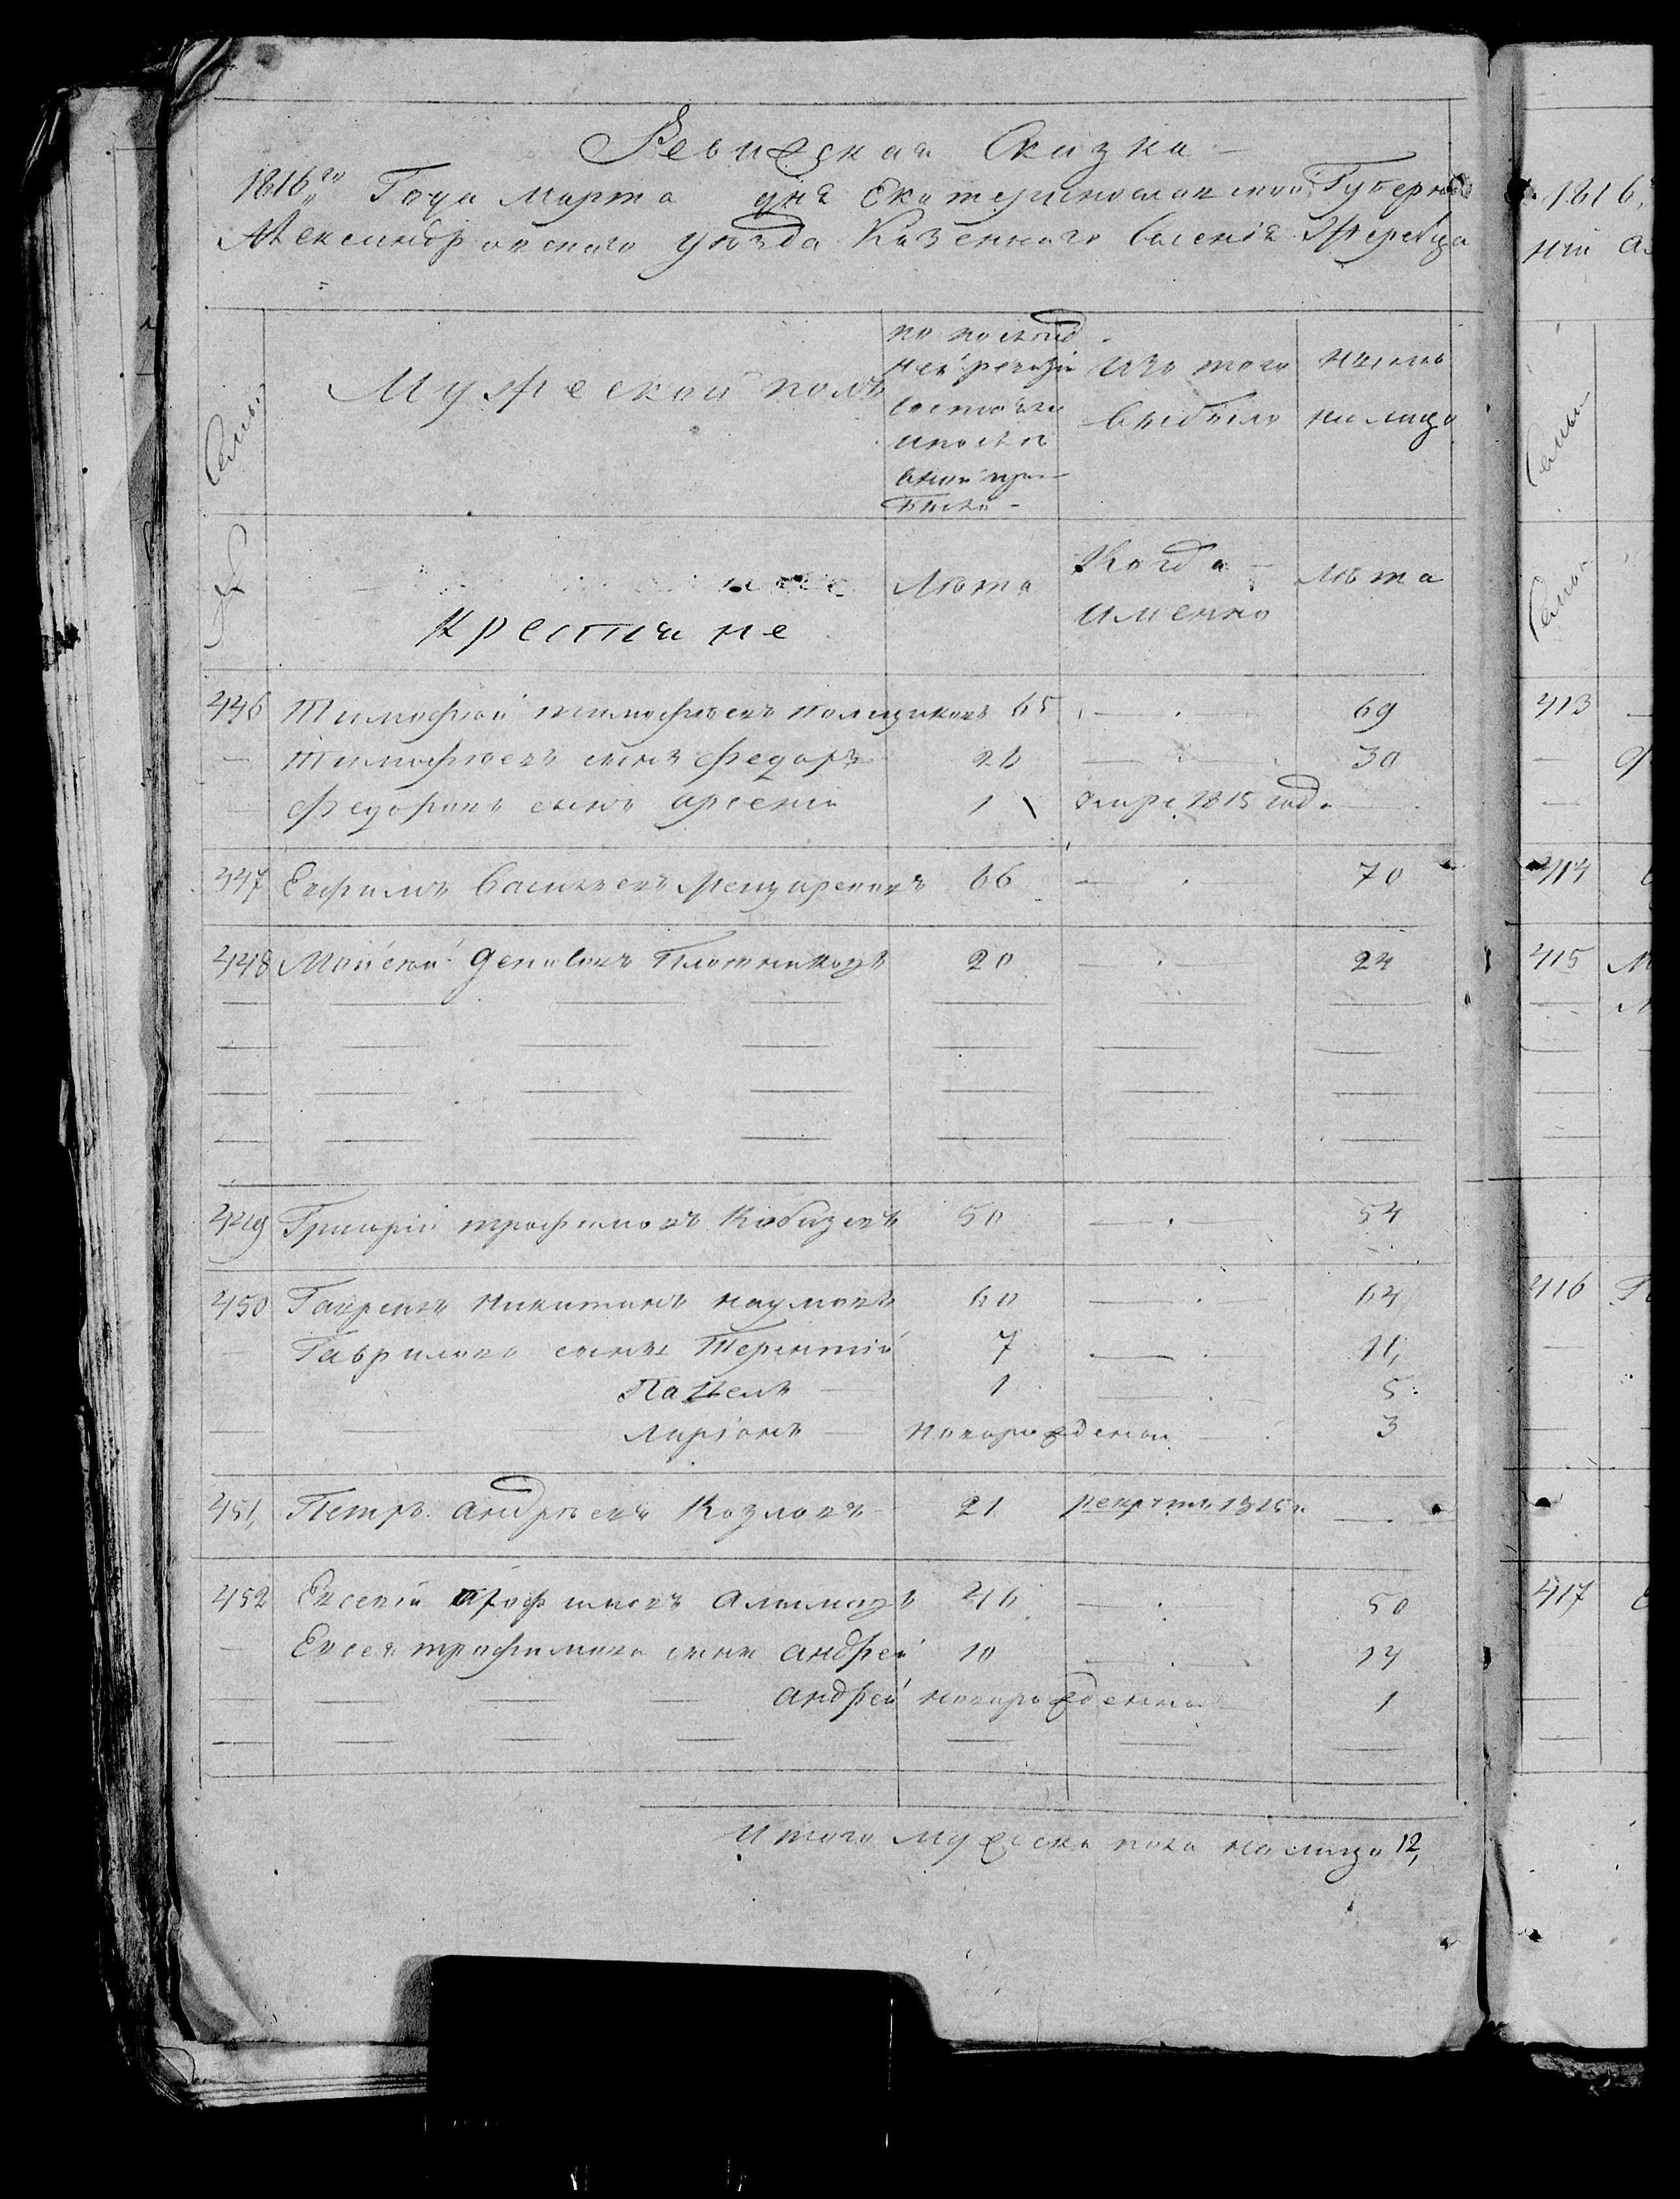 Ревизская Сказка
1816го Года марта дня Екатеринославской Губернии
Александровского уезда Казенного селения Жеребца
Семьи
Мужеской полъ
по послед
ней ревизіи
состояло
и после
оной при
было
Изъ того
выбыло
Ныне
на лицо
№
Крестьяне
Лѣта
Когда
именно
Лѣта
446 Тимофей тимофеевъ 65 69
Тимофеевъ сынъ федоръ 26 30
федоровъ сынъ арсений 1 умре 1815 года
447 Ефимъ Васильевъ 66 70
448 Мойсей Денисовъ Плотниковъ 20 24
449 Григорій трофимовъ Кобизевъ 50 54
450 Гаврила Никитинъ наумовъ 60 64
Гаврилова сыны Терентий 7 11,
Павелъ 1 5
Ларіонъ новорожденои 3
451, Петръ андреевъ Козловъ 21 рекрутъ 1815г.
452 Евсеий трофимовъ 46 50
Евсея трофимова сыны андрей 10 14
андрей новорожденои 1
Итого мужеска пола на лицо 12,
1816,
Семьи
Семьи
413
414
415
416
417